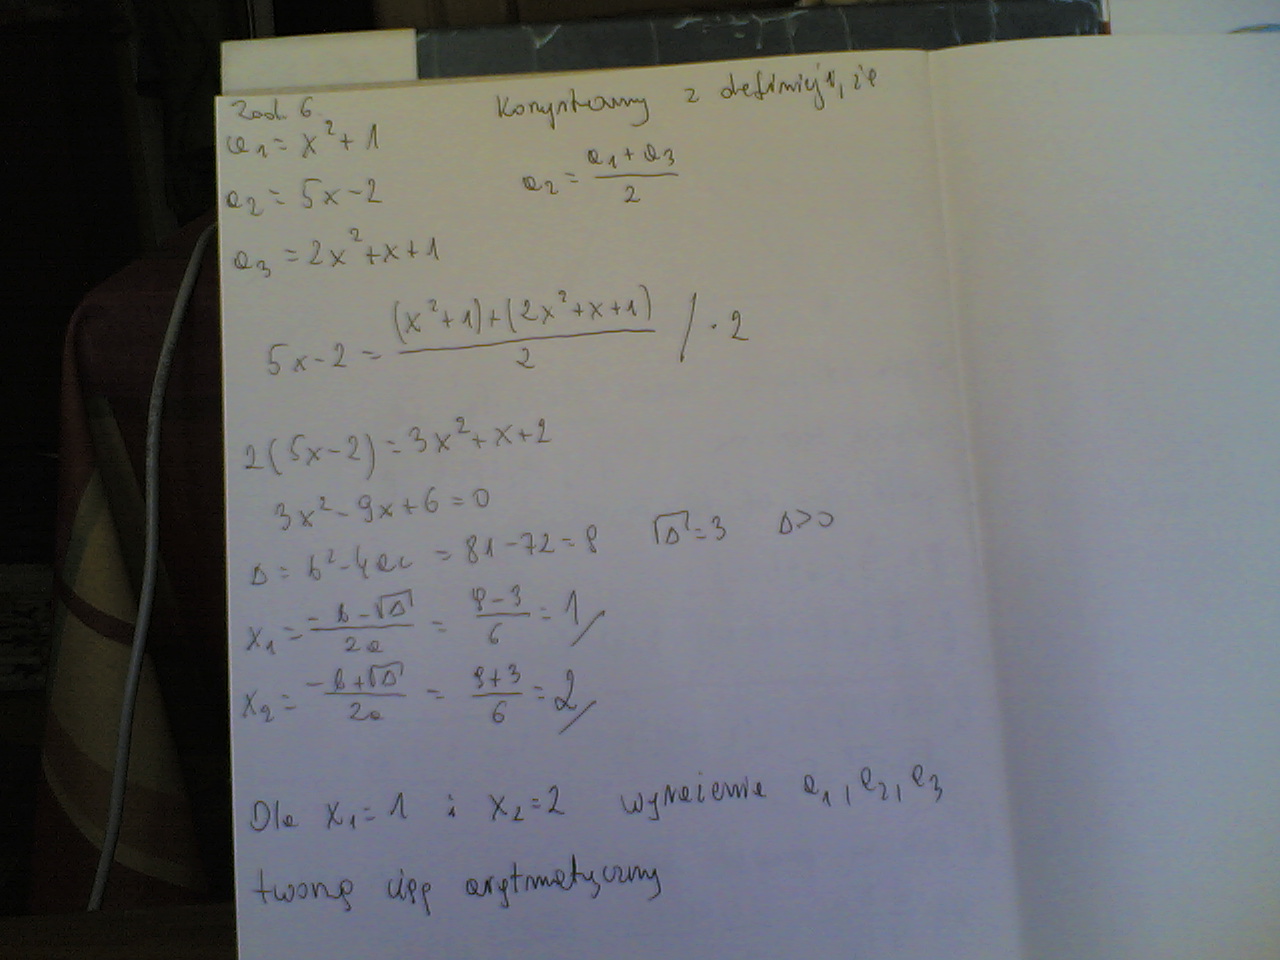 Zad. 6
Korzystamy z definicji, że
a₁ = x² + 1
a₂ = 5x - 2
a₂ = (a₁ + a₃)/2
a₃ = 2x² + x + 1
5x - 2 = ((x² + 1) + (2x² + x + 1))/2 / · 2
2(5x - 2) = 3x² + x + 2
3x² - 9x + 6 = 0
Δ = b² - 4ac = 81 - 72 = 9 √Δ = 3 Δ > 0
x₁ = (-b - √Δ)/2a = (9 - 3)/6 = 1
x₂ = (-b + √Δ)/2a = (9 + 3)/6 = 2
Dla x₁ = 1 i x₂ = 2 wyrażenie a₁, a₂, a₃
tworzą ciąg arytmetyczny